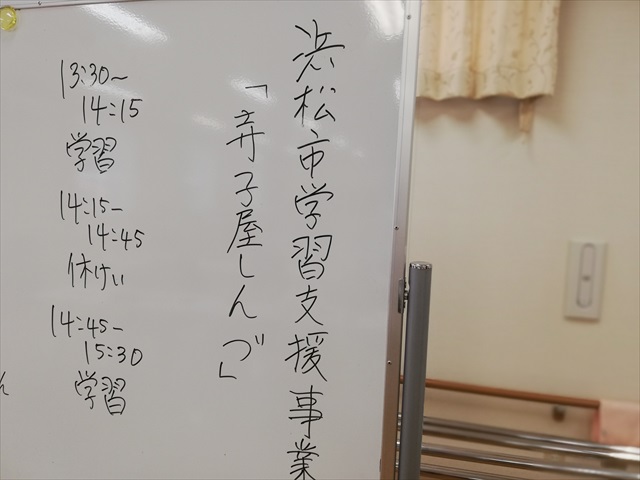 浜松市学習支援事業
「寺子屋しんづ」
13:30〜
14:15
学習
14:15−
14:45
休けい
14:45−
15:30
学習